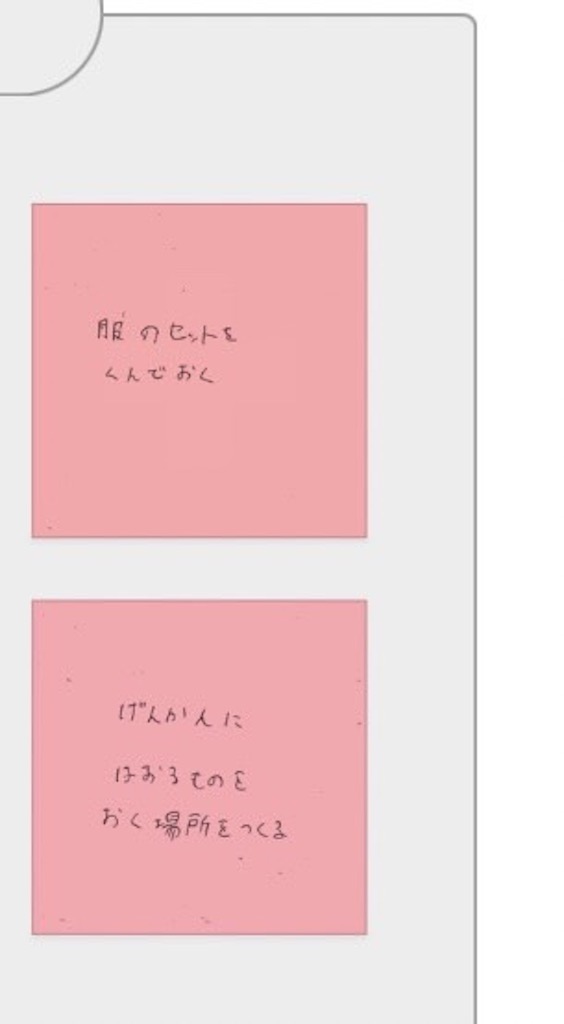 服のセットを
くんでおく
げんかんに
はおるものを
おく場所をつくる